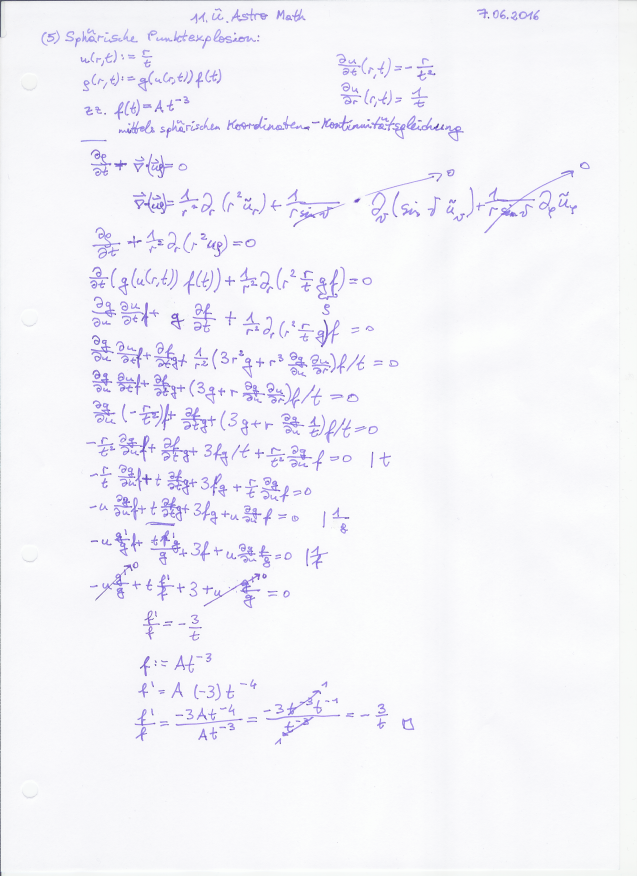 11. Ü. Astro Math 7.06.2016
(5) Sphärische Punktexplosion:
u(r,t) := r/t ∂u/∂t (r,t) = -r/t²
ρ(r,t) := g(u(r,t)) f(t) ∂u/∂r (r,t) = 1/t
zz. f(t) = A t⁻³
mittels sphärischen Koordinaten - Kontinuitätsgleichung
∂ρ/∂t + ∇⃗·(u⃗ρ) = 0
∇⃗·(u⃗ρ) = 1/r² ∂r (r² ũr) + 1/(r sin ϑ) · ∂ϑ (sin ϑ ũϑ) → 0 + 1/(r sin ϑ) ∂φ ũφ → 0
∂ρ/∂t + 1/r² ∂r (r² uρ) = 0
∂/∂t (g(u(r,t)) f(t)) + 1/r² ∂r (r² r/t gf) = 0
ρ
∂g/∂u ∂u/∂t f + g ∂f/∂t + 1/r² ∂r (r² r/t g) f = 0
∂g/∂u ∂u/∂t f + ∂f/∂t g + 1/r² (3r² g + r³ ∂g/∂u ∂u/∂r) f/t = 0
∂g/∂u ∂u/∂t f + ∂f/∂t g + (3g + r ∂g/∂u ∂u/∂r) f/t = 0
∂g/∂u (-r/t²) f + ∂f/∂t g + (3g + r ∂g/∂u 1/t) f/t = 0
-r/t² ∂g/∂u f + ∂f/∂t g + 3fg/t + r/t² ∂g/∂u f = 0 | t
-r/t ∂g/∂u f + t ∂f/∂t g + 3fg + r/t ∂g/∂u f = 0
-u ∂g/∂u f + t ∂f/∂t g + 3fg + u ∂g/∂u f = 0 | 1/g
-u g'/g f + t f' g/g + 3f + u ∂g/∂u f/g = 0 | 1/f
-u g'/g → 0 + t f'/f + 3 + u g'/g → 0 = 0
f'/f = -3/t
f := At⁻³
f' = A (-3) t⁻⁴
f'/f = -3At⁻⁴/At⁻³ = -3 t⁻³ t⁻¹/t⁻³ = -3/t □